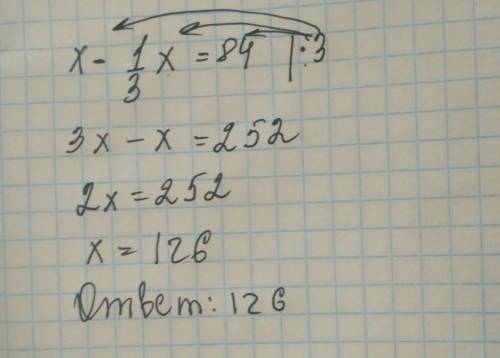 x - 1/3 x = 84 | · 3
3x - x = 252
2x = 252
x = 126
Ответ: 126